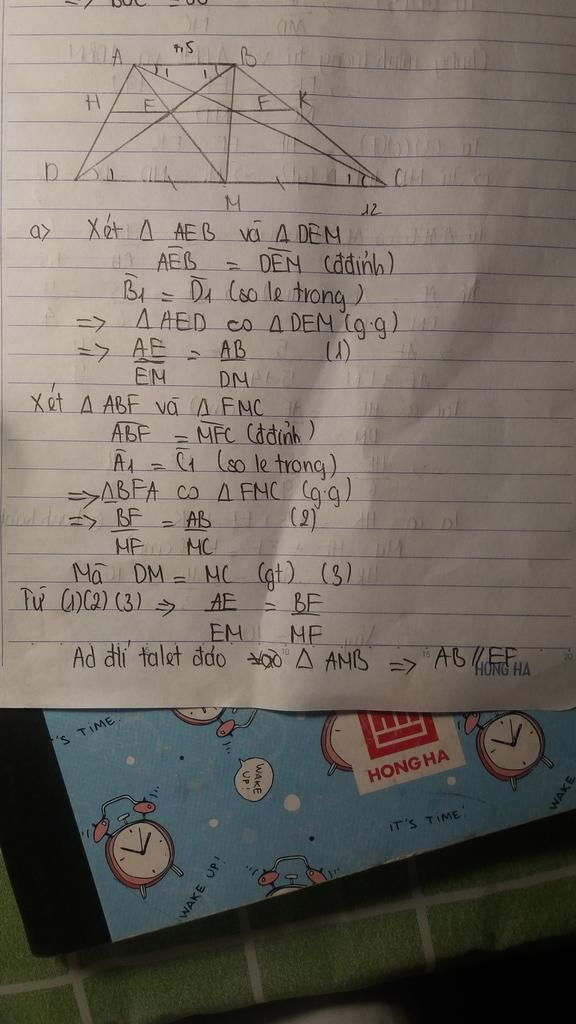 => BOC =
7,5
A B
H E F K
D C
M 12
a) Xét Δ AEB và Δ DEM
AEB = DEM (đđỉnh)
B1 = D1 (so le trong)
=> Δ AED co Δ DEM (g.g)
=> AE/EM = AB/DM (1)
Xét Δ ABF và Δ FMC
ABF = MFC (đđỉnh)
A1 = C1 (so le trong)
=> ΔBFA co Δ FMC (g.g)
=> BF/MF = AB/MC (2)
Mà DM = MC (gt) (3)
Từ (1)(2)(3) => AE/EM = BF/MF
Ad đlí talet đảo Δ AMB => AB // EF
HONG HA
'S TIME.
WAKE UP!
HONG HA
IT'S TIME.
WAKE
WAKE UP!